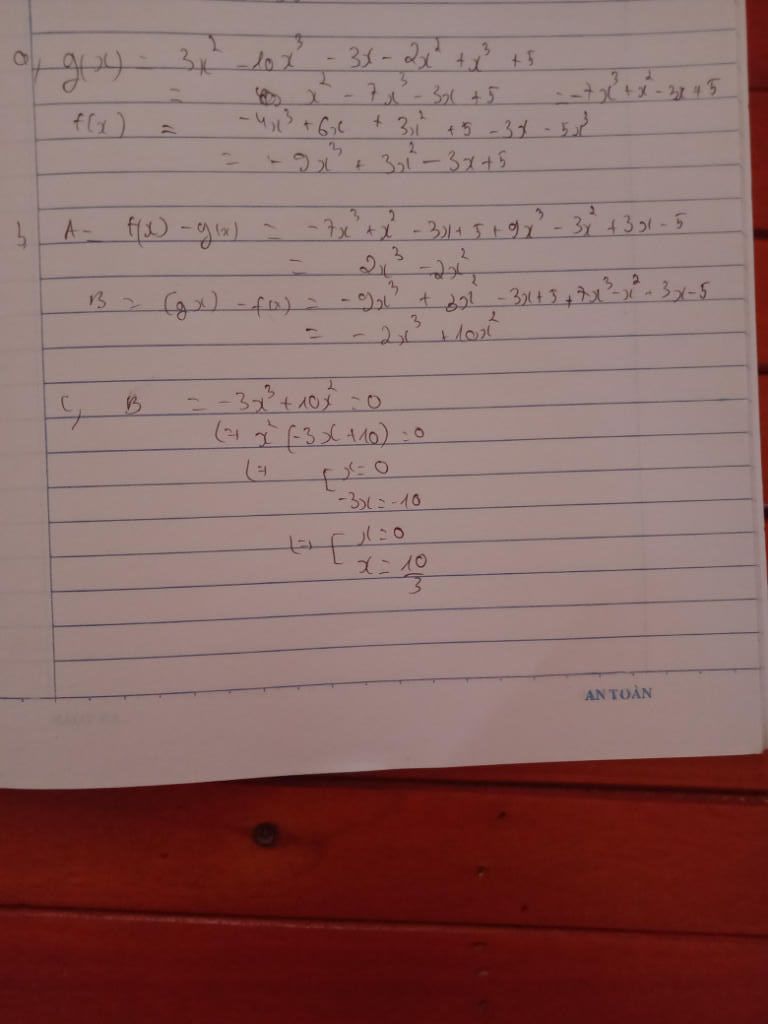 a, g(x) = 3x² - 10x³ - 3x - 2x² + x³ + 5
= x² - 7x³ - 3x + 5 = -7x³ + x² - 3x + 5
f(x) = -4x³ + 6x + 3x² + 5 - 3x - 5x³
= - 9x³ + 3x² - 3x + 5
b, A = f(x) - g(x) = -7x³ + x² - 3x + 5 + 9x³ - 3x² + 3x - 5
= 2x³ - 2x²
B = (gx) - f(x) = -9x³ + 3x² - 3x + 5 + 7x³ - x² - 3x - 5
= - 2x³ + 10x²
C, B = -3x³ + 10x² = 0
(=) x² (-3x + 10) = 0
(=) [ x = 0
-3x = -10
(=) [ x = 0
x = 10/3
AN TOÀN